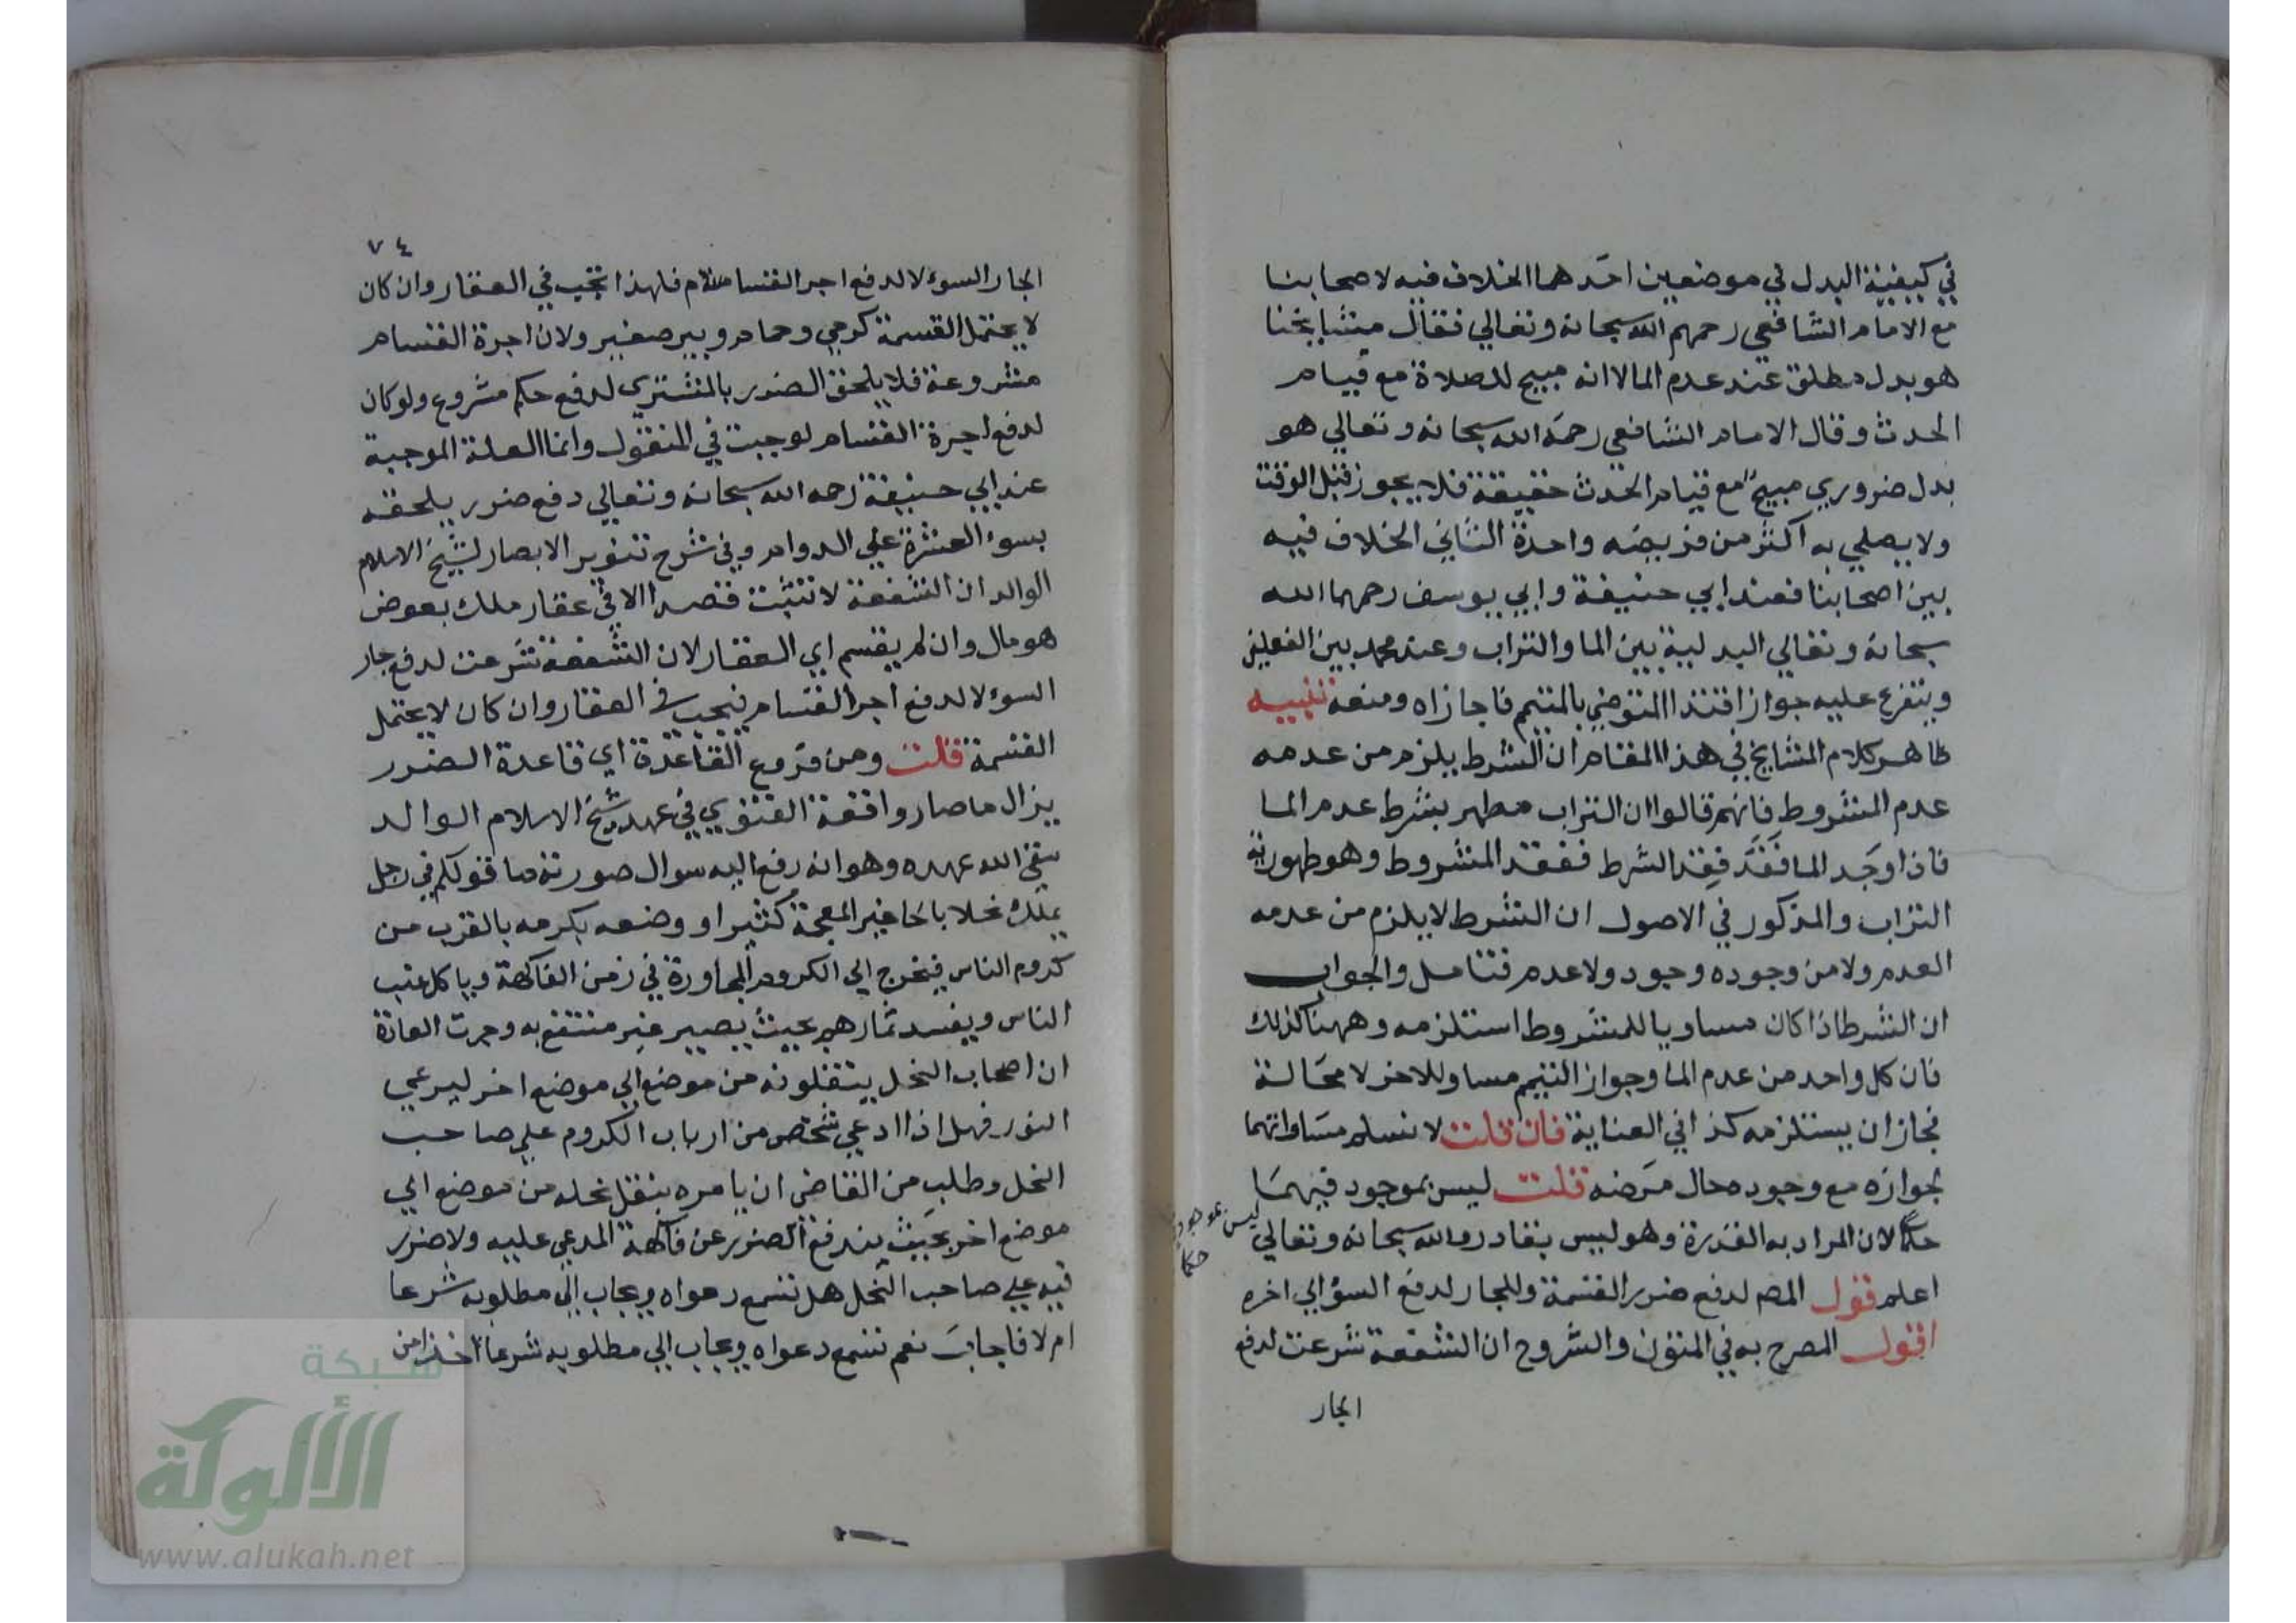 في كيفية البدل في موضعين احدهما الخلاف فيه لاصحابنا
مع الامام الشافعي رحمهم الله سبحانه وتعالي فقال مشايخنا
هو بدل مطلق عند عدم الما لانه مبيح للصلاة مع قيام
الحدث وقال الامام الشافعي رحمه الله سبحانه وتعالي هو
بدل ضروري مبيح مع قيام الحدث حقيقة فلا يجوز قبل الوقت
ولا يصلي به اكثر من فريضه واحدة الثاني الخلاف فيه
بين اصحابنا فعند ابي حنيفة وابي يوسف رحمهما الله
سبحانه وتعالي البدلية بين الما والتراب وعند محمد بين الفعلين
ويتفرع عليه جواز اقتدا المتوضي بالمتيمم فاجازاه ومنعه تنبيه
ظاهر كلام المشايخ في هذا المقام ان الشرط يلزم من عدمه
عدم المشروط فانهم قالوا ان التراب مطهر بشرط عدم الما
فاذا وجد الما فقد فقد الشرط ففقد المشروط وهو طهورية
التراب والمذكور في الاصول ان الشرط لا يلزم من عدمه
العدم ولا من وجوده وجود ولا عدم فتامل والجواب
ان الشرط اذا كان مساويا للمشروط استلزمه وههنا كذلك
فان كل واحد من عدم الما وجواز التيمم مساو للاخر لا محالة
فجاز ان يستلزمه كذا في العناية فان قلت لا نسلم مساواتهما
لجوازه مع وجوده حال مرضه قلت ليس بموجود فيهما
ليس بموجود حكما
حكما لان المراد به القدرة وهو ليس بقادر والله سبحانه وتعالي
اعلم قول المص لدفع ضرر القسمة وللجار لدفع السؤ الي اخره
اقول المصرح به في المتون والشروح ان الشفعة شرعت لدفع
الجار
٧٤
الجار السوء لا لدفع اجر القسام فلهذا تجب في العقار وان كان
لا يحتمل القسمة كرحي وحمام وبير صغير ولان اجرة القسام
مشروعة فلا يلحق الضرر بالمشتري لدفع حكم مشروع ولو كان
لدفع اجرة القسام لوجبت في المنقول وانما العلة الموجبة
عند ابي حنيفة رحمه الله سبحانه وتعالي دفع ضرر يلحقه
بسوء العشرة علي الدوام وفي شرح تنوير الابصار لشيخ الاسلام
الوالد ان الشفعة لا تثبت قصدا الا في عقار ملك بعوض
هو مال وان لم يقسم اي العقار لان الشفعة شرعت لدفع جار
السوء لا لدفع اجر القسام فتجب في العقار وان كان لا يحتمل
القسمة قلت ومن فروع القاعدة اي قاعدة الضرر
يزال ما صار واقعة الفتوي في عهد شيخ الاسلام الوالد
سقي الله عهده وهو انه رفع اليه سوال صورته ما قولكم في رجل
يملك نحلا بالحا غير المعجمة كثيرا ووضعه بكرمه بالقرب من
كروم الناس فيخرج الي الكروم المجاورة في زمن الفاكهة وياكل عنب
الناس ويفسد ثمارهم بحيث يصير غير منتفع به وجرت العادة
ان اصحاب النحل ينتقلونه من موضع الي موضع اخر ليرعي
النور فهل اذا ادعي شخص من ارباب الكروم علي صاحب
النحل وطلب من القاضي ان يامره بنقل نحله من موضع الي
موضع اخر بحيث يندفع الضرر عن فاكهة المدعي عليه ولا ضرر
فيه علي صاحب النحل هل تسمع دعواه ويجاب الي مطلوبه شرعا
ام لا فاجاب نعم تسمع دعواه ويجاب الي مطلوبه شرعا اخذا من
شبكة
الألوكة
www.alukah.net